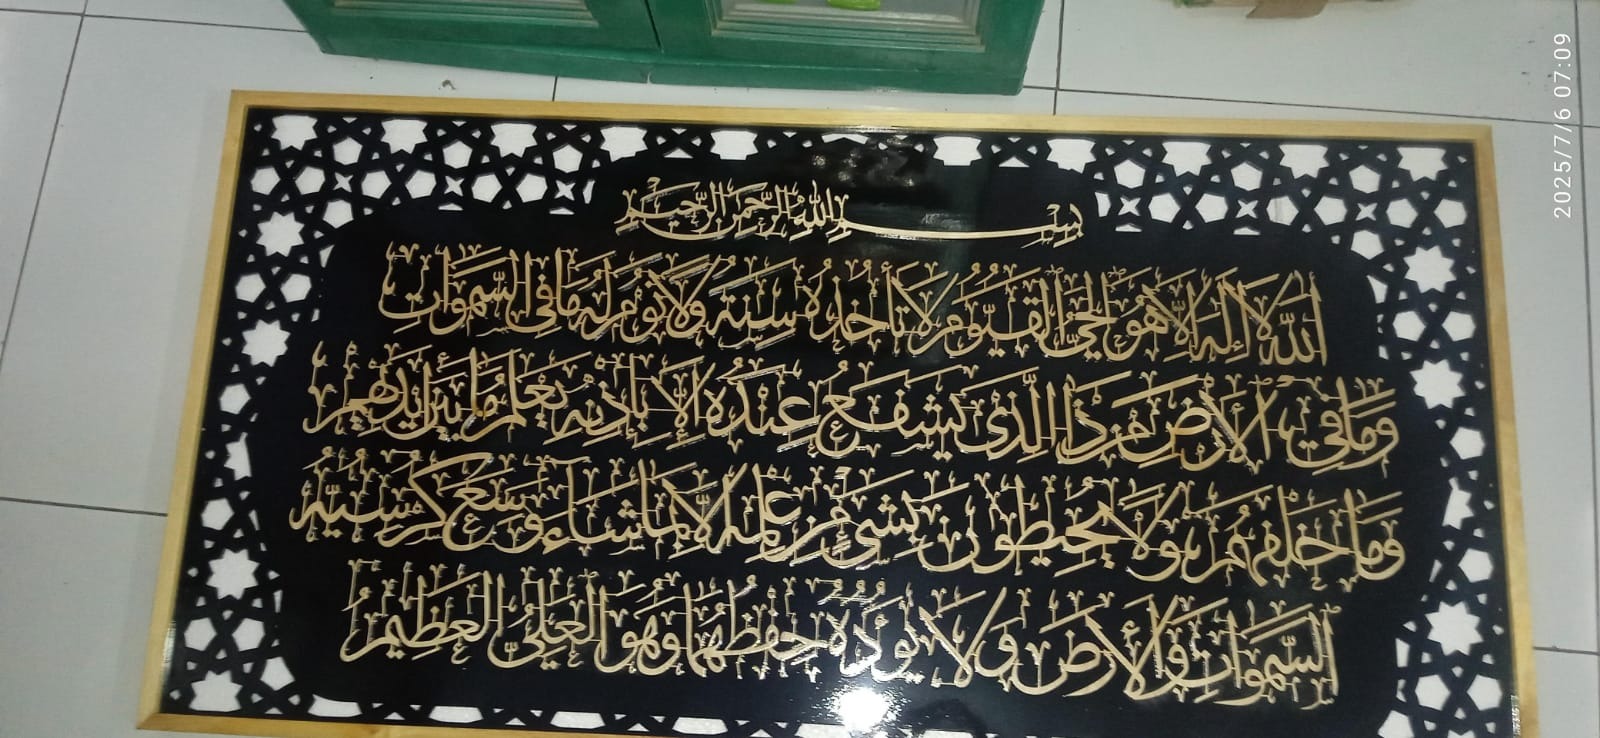 بسم الله الرحمن الرحيم
الله لا إله إلا هو الحي القيوم لا تأخذه سنة ولا نوم له ما في السموات
وما في الأرض من ذا الذي يشفع عنده إلا بإذنه يعلم ما بين أيديهم
وما خلفهم ولا يحيطون بشيء من علمه إلا بما شاء وسع كرسيه
السموات والأرض ولا يؤده حفظهما وهو العلي العظيم
2025/7/6 07:09